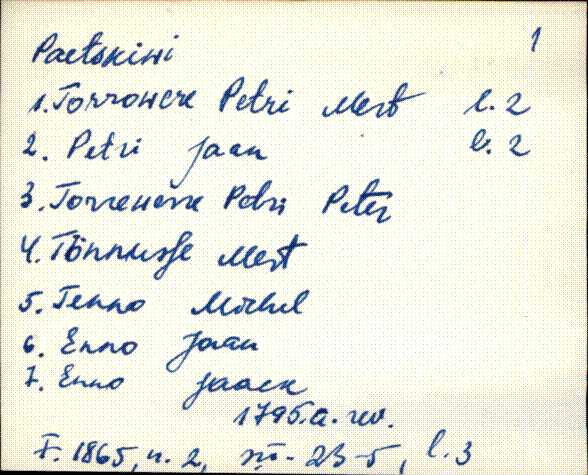 1
Paetskiwi
1. Torrowere Petri Mert l. 2
2. Petri Jaan l. 2
3. Torrewerre Petri Peter
4. Tönnusse Mert
5. Tenno Michel
6. Enno Jaan
7. Enno Jaack
1795. a. rev.
F. 1865, n. 2, 23-5, l. 3